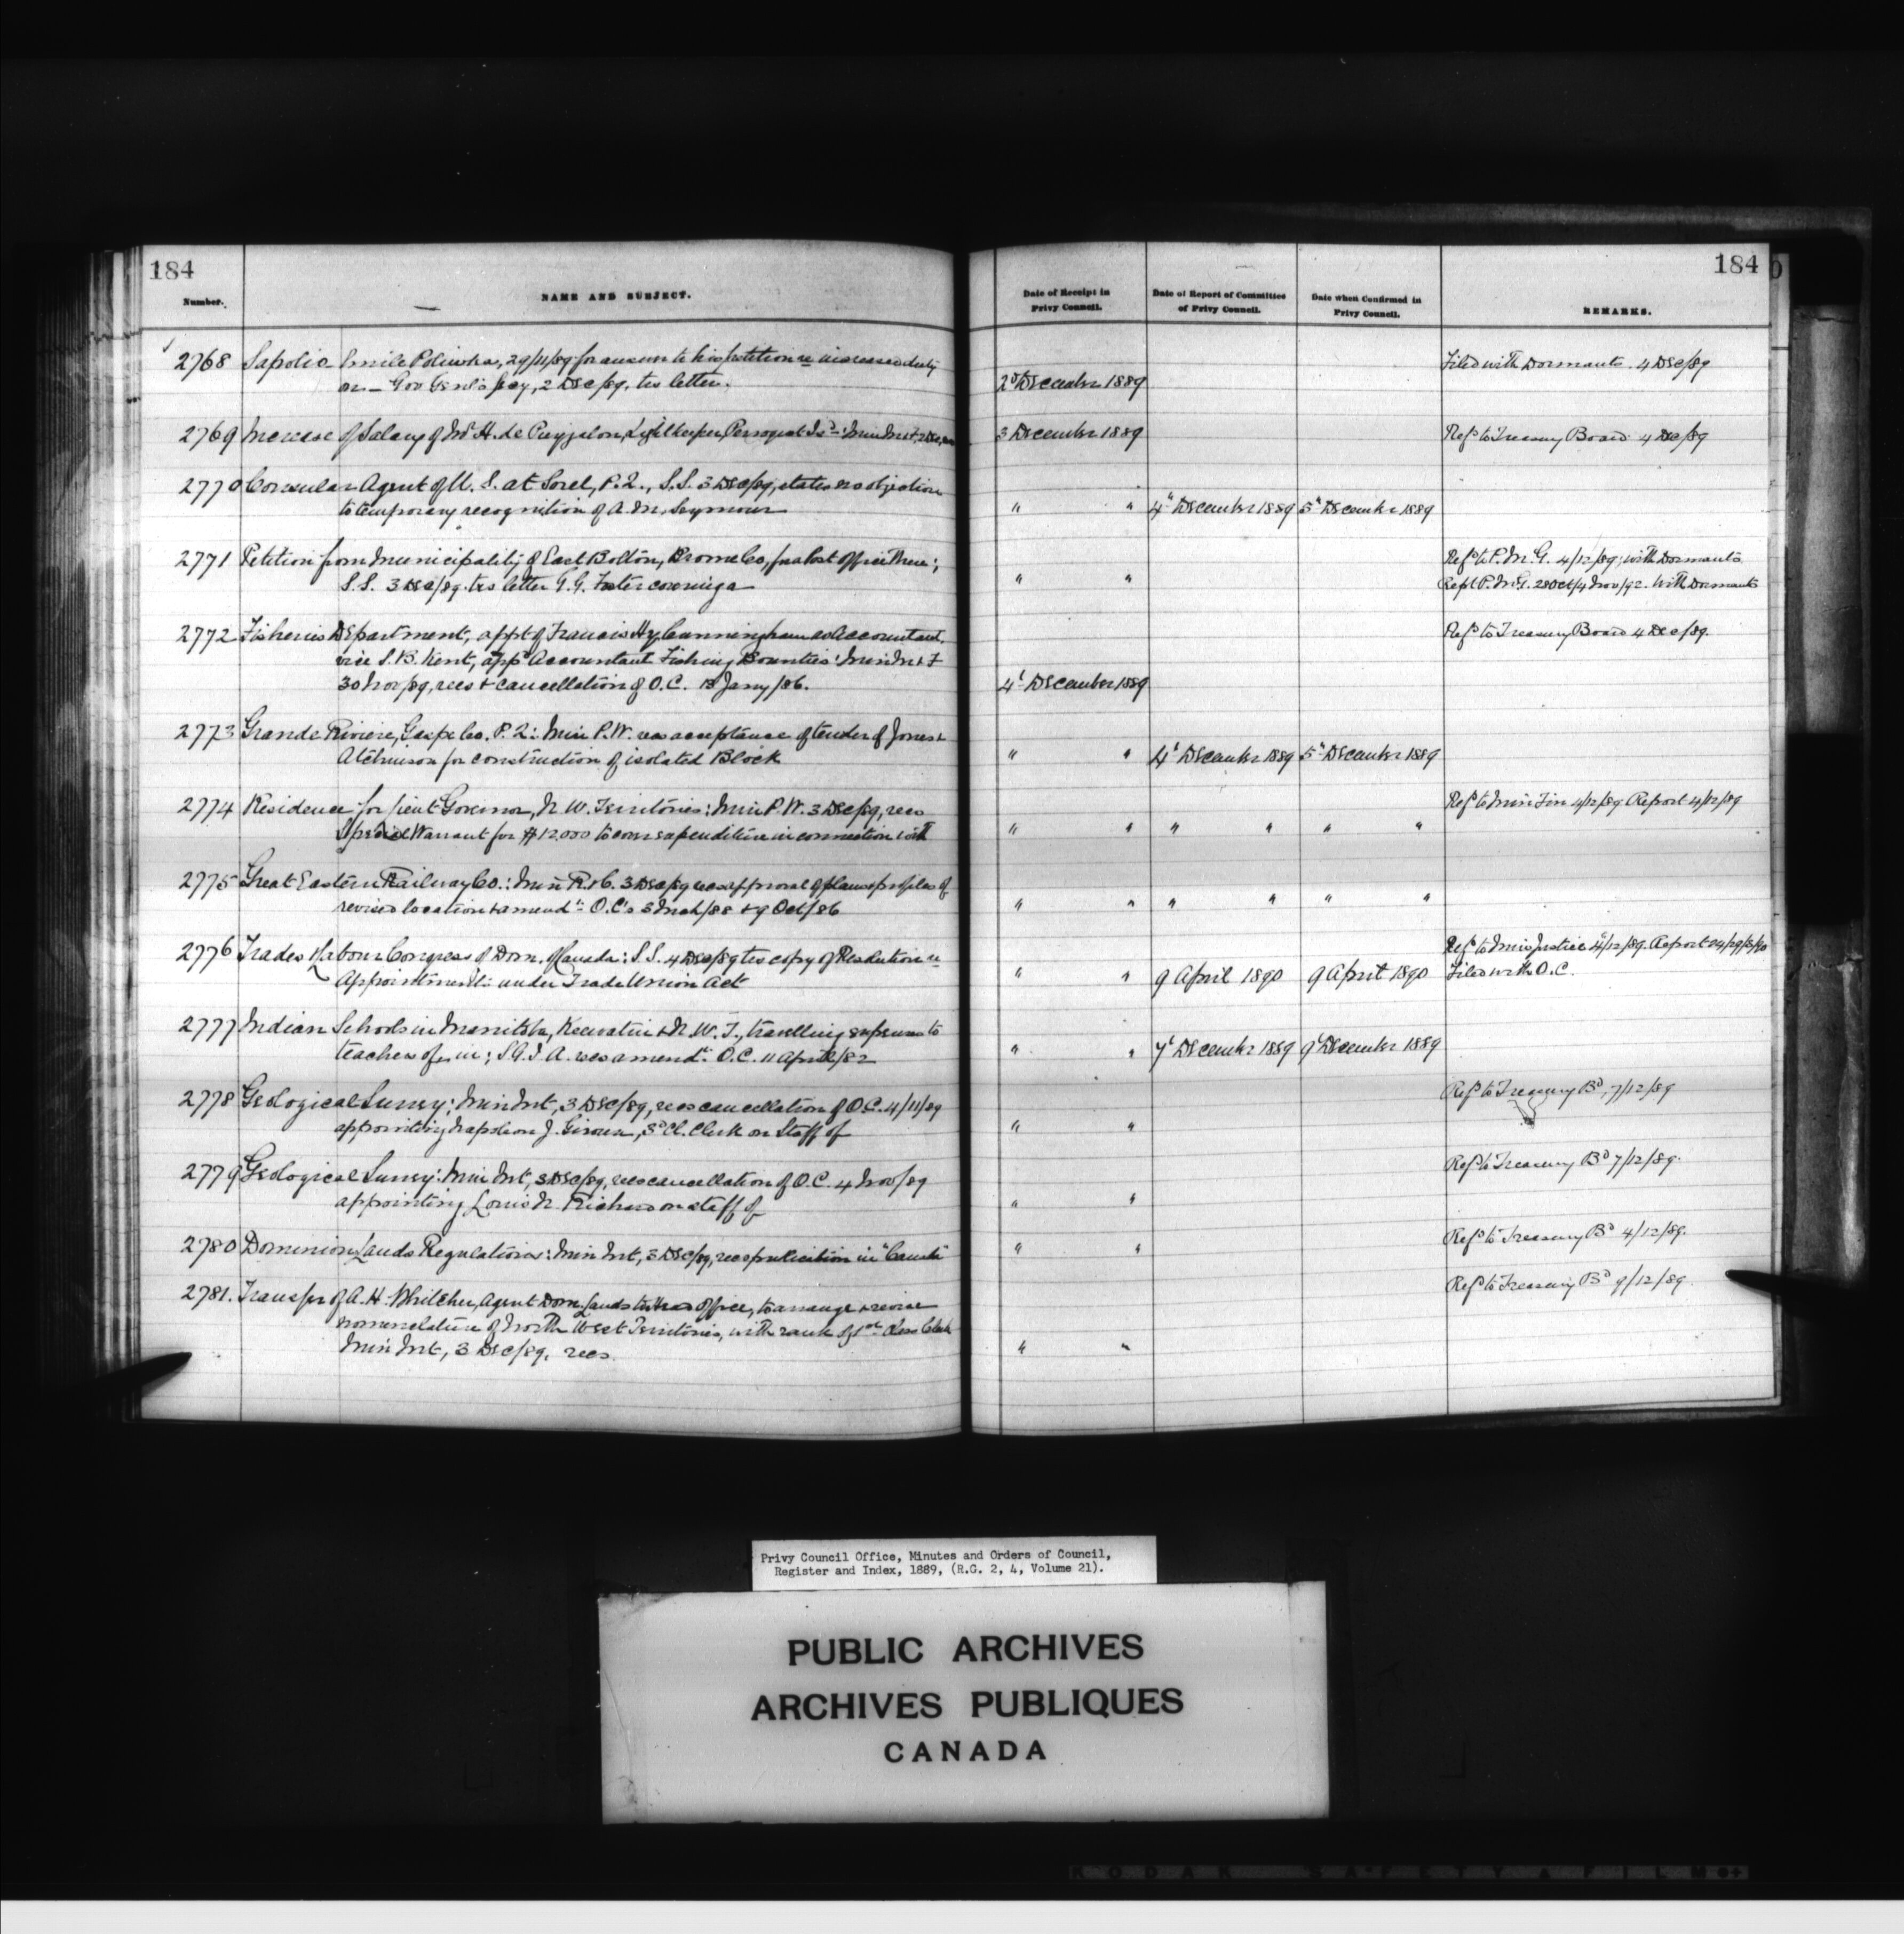 184
Number.
NAME AND SUBJECT.
Date of Receipt in Privy Council.
Date of Report of Committee of Privy Council.
Date when Confirmed in Privy Council.
REMARKS.
184
2768 Sapolio Emile Poliwka, 29/11/89 for answer to his petition re increased duty
on — Gov Genl's Secy, 2 Dec/89, trs letter. 2d December 1889
Filed with Dormants. 4 Dec/89
2769 Increase of Salary of Mr H. de Puyjalon, Lightkeeper, Perroquet Isd: Min 3 December 1889 Refd to Treasury Board 4 Dec/89
2770 Consular Agent of U. S. at Sorel, P.Q., S.S. 3 Dec/89, states no objection
to temporary recognition of A. M. Seymour " " 4" December 1889 5" December 1889
2771 Petition from Municipality of East Bolton, Brome Co, for a Post Office there;
S.S. 3 Dec/89. trs letter G.G. Foster covering a " "
Refd to P.M.G. 4/12/89; with Dormants
Rept P.M.G. 28 Oct/4 Nov/92. With Dormants
2772 Fisheries Department, appt of Francis Hy Cunningham as Accountant,
vice S.B. Kent, appd Accountant Fishing Bounties: Min M & F
30 Nov/89, recs & cancellation of O.C. 13 Jany/86. 4' December 1889
Refd to Treasury Board 4 Dec/89.
2773 Grande Riviere, Gaspe Co. P.Q: Min P.W. recs acceptance of tender of Jones &
Atchinson for construction of isolated Block " " 4' December 1889 5" December 1889
2774 Residence for Lieut Governor, N. W. Territories: Min P.W. 3 Dec/89, recs
Special Warrant for $12.000 to cover expenditure in connection with " " " " " "
Refd to Min Fin 4/12/89. Report 4/12/89
2775 Great Eastern Railway Co.: Min R & C. 3 Dec/89 recs approval of plans & profiles of
revised location & amendt O.C's 3 Mch/88 & 9 Oct/86 " " " " " "
2776 Trades & Labour Congress of Dom. of Canada: S.S. 4 Dec/89 trs copy of Resolution re
Appointments under Trade Union Act " " 9 April 1890 9 April 1890
Refd to Min Justice 4/12/89. Report
Filed with O.C.
2777 Indian Schools in Manitoba, Keewatin & N. W. T., travelling expenses to
teachers of, in; S.G.I.A. recs amendt O.C. 11 April/82 " " 7' December 1889 9' December 1889
2778 Geological Survey; Min Int, 3 Dec/89, recs cancellation of O.C. 4/11/89
appointing Napoleon J. Giroux, 3d Cl. Clerk on Staff of " "
Refd to Treasury Bd, 7/12/89
2779 Geological Survey: Min Int, 3 Dec/89, recs cancellation of O.C. 4 Nov/89
appointing Louis N. Richard on staff of " "
Refd to Treasury Bd 7/12/89.
2780 Dominion Lands Regulations: Min Int, 3 Dec/89, recs publication in " " "
Refd to Treasury Bd 4/12/89.
2781. Transfer of A. H. Whitcher, Agent Dom. Lands to Head Office, to arrange & revise
nomenclature of North West Territories, with rank of 1st Class Clerk
Min Int, 3 Dec/89, recs " "
Refd to Treasury Bd 9/12/89.
Privy Council Office, Minutes and Orders of Council,
Register and Index, 1889, (R.G. 2, 4, Volume 21).
PUBLIC ARCHIVES
ARCHIVES PUBLIQUES
CANADA
KODAK SAFETY FILM